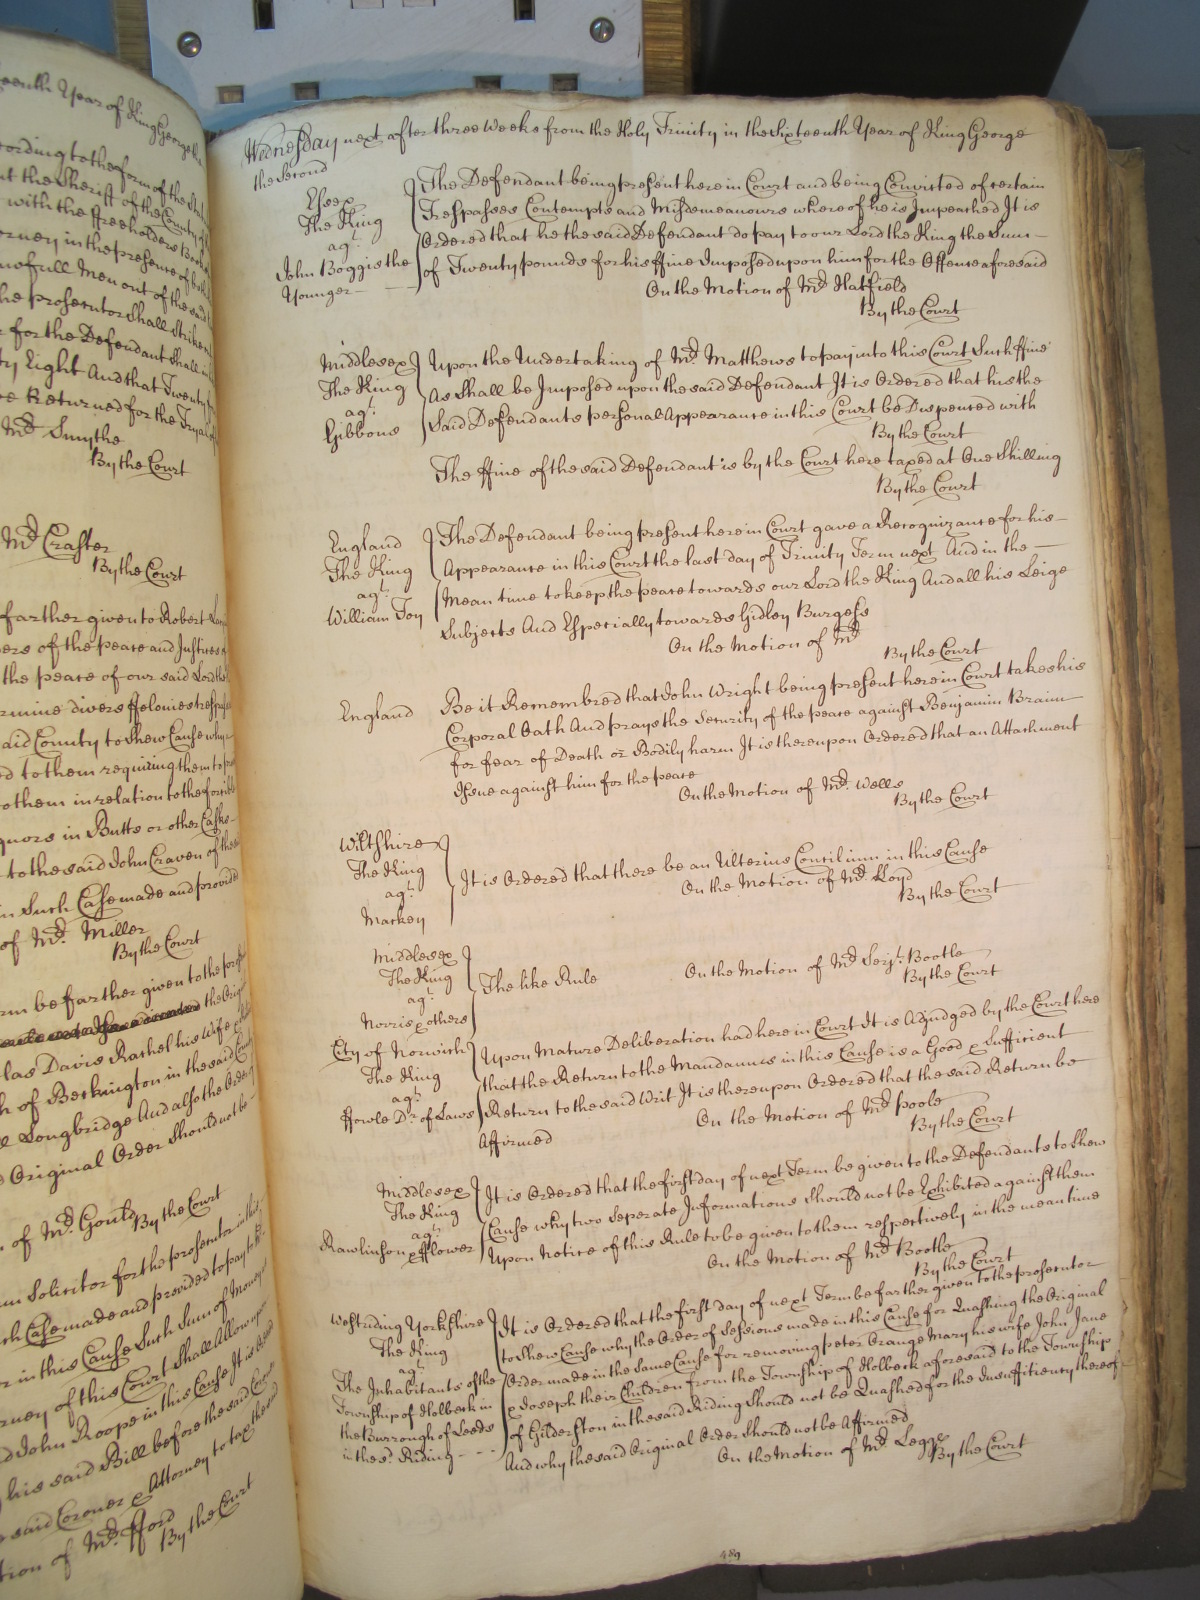 Wednesday next after three Weeks from the Holy Trinity in the Sixteenth Year of King George
the Second
Essex
The King
agt.
John Boggis the
Younger
The Defendant being present here in Court and being Convicted of certain
Trespasses Contempts and Misdemeanours whereof he is Impeached It is
Ordered that he the said Defendant do pay to our Lord the King the Sum
of Twenty pounds for his ffine Imposed upon him for the Offence aforesaid
On the Motion of Mr. Hatfield
By the Court
Middlesex
The King
agt.
Gibbons
Upon the Undertaking of Mr. Matthews to pay into this Court Such ffine
As Shall be Imposed upon the said Defendant It is Ordered that his the
Said Defendants personal Appearance in this Court be Dispenced with
By the Court
The ffine of the said Defendant is by the Court here taxed at One Shilling
By the Court
England
The King
agt.
William Toy
The Defendant being present here in Court gave a Recognizance for his
Appearance in this Court the last day of Trinity Term next And in the
Mean time to keep the peace towards our Lord the King And all his Leige
Subjects And Especially towards Gidley Burgess
On the Motion of Mr.
By the Court
England
Be it Remembred that John Wright being present here in Court takes his
Corporal Oath And prays the Security of the peace against Benjamin Braim
for fear of Death or Bodily harm It is thereupon Ordered that an Attachment
Issue against him for the peace
On the Motion of Mr. Wells
By the Court
Wiltshire
The King
agt.
Markey
It is Ordered that there be an Ulterius Concilium in this Cause
On the Motion of Mr. Lloyd
By the Court
Middlesex
The King
agt.
Norris & others
The like Rule
On the Motion of Mr. Serjt. Bootle
By the Court
City of Norwich
The King
agt.
ffowle Dr. of Laws
Upon Mature Deliberation had here in Court It is Adjudged by the Court here
that the Return to the Mandamus in this Cause is a Good & Sufficient
Return to the said Writ It is thereupon Ordered that the said Return be
Affirmed
On the Motion of Mr. Poole
By the Court
Middlesex
The King
agt.
Rawlinson & fflower
It is Ordered that the first day of next Term be given to the Defendants to Shew
Cause why two Seperate Informations Should not be Exhibited against them
Upon Notice of this Rule to be given to them respectively in the mean time
On the Motion of Mr. Bootle
By the Court
Westriding Yorkshire
The King
agt.
The Inhabitants of the
Township of Holbeck in
the Burrough of Leeds
in the sd. Riding
It is Ordered that the first day of next Term be farther given to the prosecutor
to Shew Cause why the Order of Sessions made in this Cause for Quashing the Original
Order made in the Same Cause for removing Peter Grange Mary his wife John Jane
& Joseph their Children from the Township of Holbeck aforesaid to the Township
of Gilderston in the said Riding Should not be Quashed for the Insufficiency thereof
And why the said Original Order Should not be Affirmed
On the Motion of Mr. Legge
By the Court
489
teenth Year of King George the
cording to the form of the
the Sheriff of the County
with the ffreeholders Book
orney in the presence of the
Lawfull Men out of the said
the prosecutor Shall Strike
for the Defendant Shall
ty Eight And that Twenty
be Returned for the Tryal of
Mr. Smythe
By the Court
Mr. Craster
By the Court
farther given to Robert
ers of the peace and Justices
the peace of our said Lord the
rmine divers ffelonies
said County to Shew Cause why
ed to them requiring them to
to them in relation to the
quors in Butts or other Casks
to the said John Craven of the
in Such Case made and provided
of Mr. Miller
By the Court
rm be farther given to the
the Original
las Davis Rachel his Wife
h of Beckington in the said County
Longbridge And also the Order
Original Order Should not be
of Mr. Gould By the Court
Solicitor for the prosecutor in this
such Case made and provided to pay to
r in this Cause Such Sum of Money
rney of this Court Shall Allow
d John Roope in this Cause It is
his said Bill before the said Coroner
said Coroner & Attorney to tax the said
tion of Mr. fford
By the Court